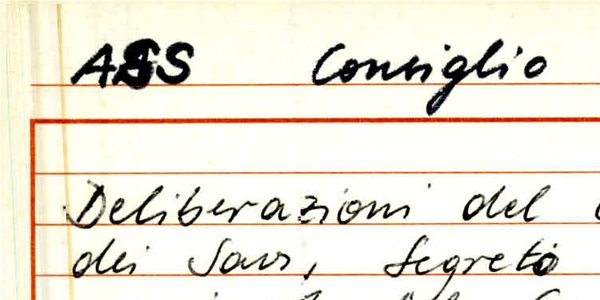 ASS Consiglio
Deliberazioni del
dei Savi, Segreto